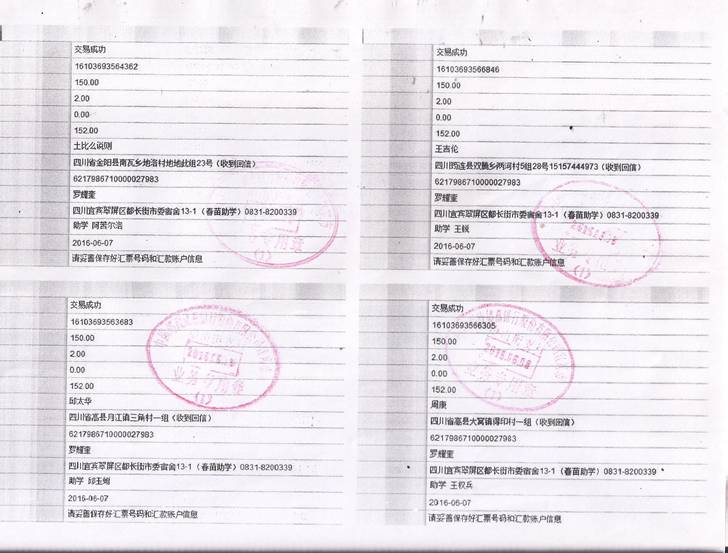 交易成功
16103693564362
150.00
2.00
0.00
152.00
土比么说则
四川省金阳县南瓦乡地洛村地地此组23号（收到回信）
6217986710000027983
罗耀奎
四川宜宾翠屏区都长街市委宿舍13-1（春苗助学）0831-8200339
助学 阿苦尔洛
2016-06-07
请妥善保存好汇票号码和汇款账户信息
交易成功
16103693566846
150.00
2.00
0.00
152.00
王吉伦
四川筠连县双腾乡两河村5组28号15157444973（收到回信）
6217986710000027983
罗耀奎
四川宜宾翠屏区都长街市委宿舍13-1（春苗助学）0831-8200339
助学 王
2016-06-07
请妥善保存好汇票号码和汇款账户信息
业务专用章
(1)
交易成功
16103693563683
150.00
2.00
0.00
152.00
邱太华
四川省高县月江镇三角村一组（收到回信）
6217986710000027983
罗耀奎
四川宜宾翠屏区都长街市委宿舍13-1（春苗助学）0831-8200339
助学 邱玉
2016-06-07
请妥善保存好汇票号码和汇款账户信息
业务专用章
(1)
交易成功
16103693566305
150.00
2.00
0.00
152.00
周庚
四川省高县大窝镇得印村一组（收到回信）
6217986710000027983
罗耀奎
四川宜宾翠屏区都长街市委宿舍13-1（春苗助学）0831-8200339
助学 王权兵
2016-06-07
请妥善保存好汇票号码和汇款账户信息
2016.06.08
业务专用章
(1)